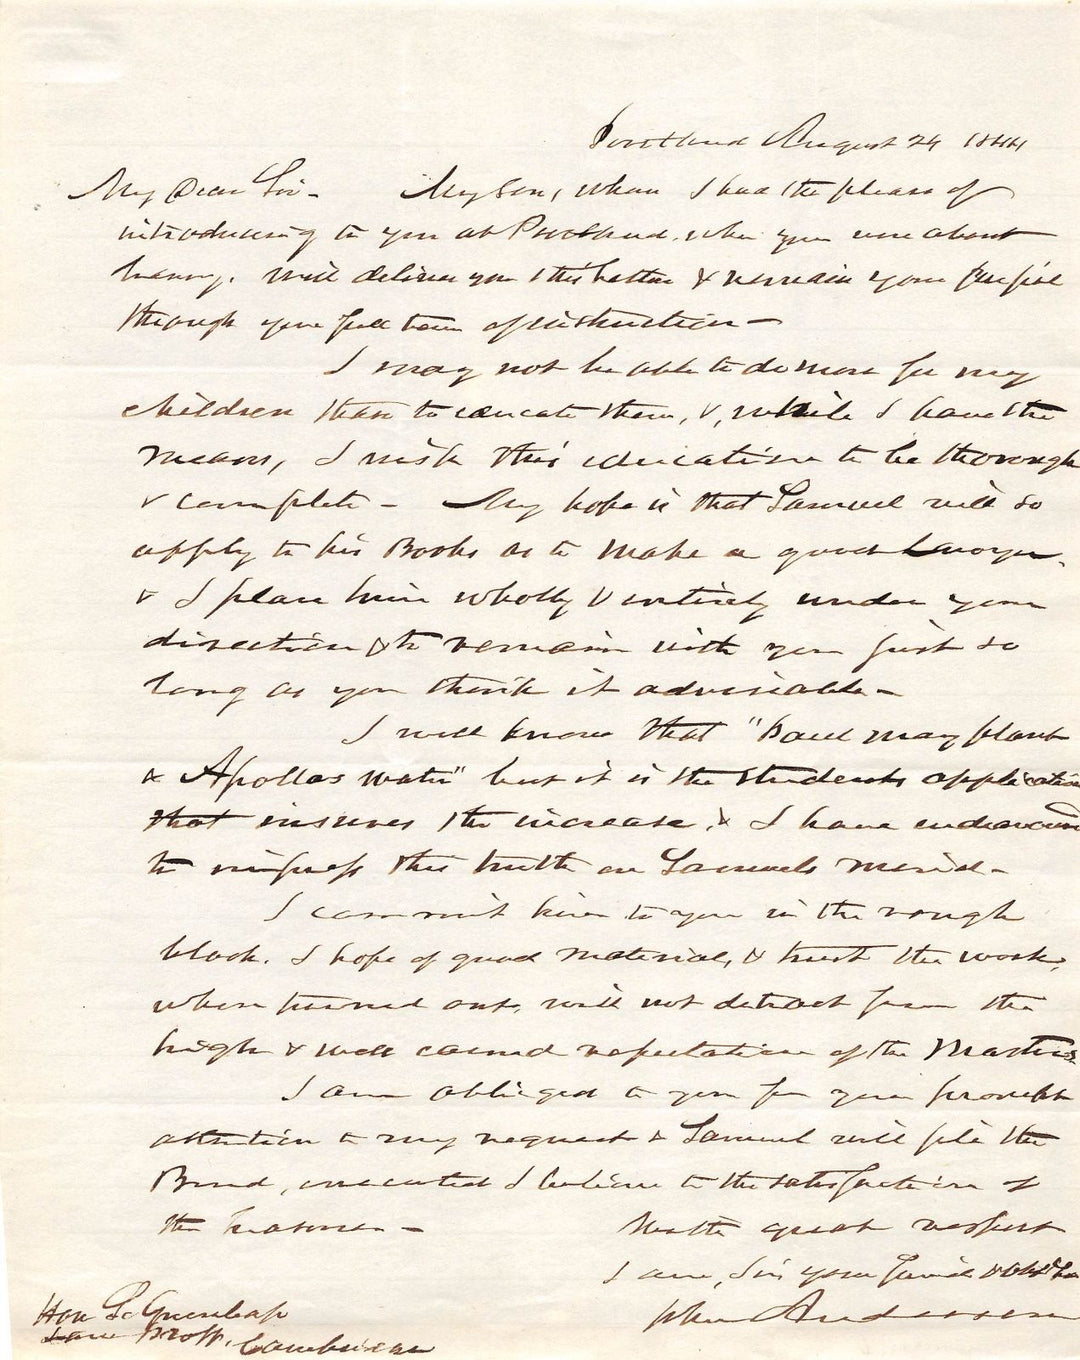 Portland August 24 1844
My Dear Sir - My Son, whom I had the pleasure of
introducing to you at Portland, when you were about
leaving, will deliver you this letter & remain your pupil
through your full term of instruction -
I may not be able to do more for my
children than to educate them, &, while I have the
means, I wish this education to be thorough
& complete - My hope is that Samuel will so
apply to his Books as to make a good Lawyer,
& I place him wholly & entirely under your
direction & to remain with you just so
long as you think it advisable -
I well know that "Paul may plant
& Apollos water" but it is the students application
that insures the increase, & I have endeavored
to impress this truth on Samuels mind -
I commit him to you in the rough
block. I hope of good material, & trust the work,
when turned out, will not detract from the
high & well earned reputation of the Masters
I am obliged to you for your prompt
attention to my request & Samuel will file the
Bond, executed I believe to the satisfaction of
the treasurer - With great respect
I am, Sir your friend & Obt
John Anderson
Hon S. Greenleaf
Law Proff. Cambridge